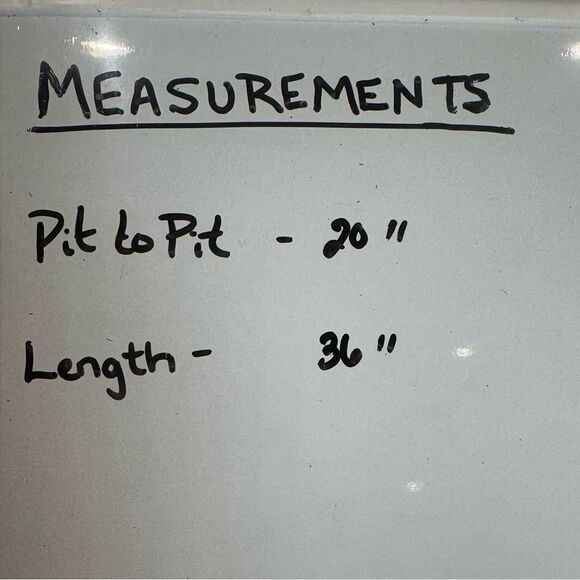 MEASUREMENTS
Pit to Pit - 20"
Length - 36"